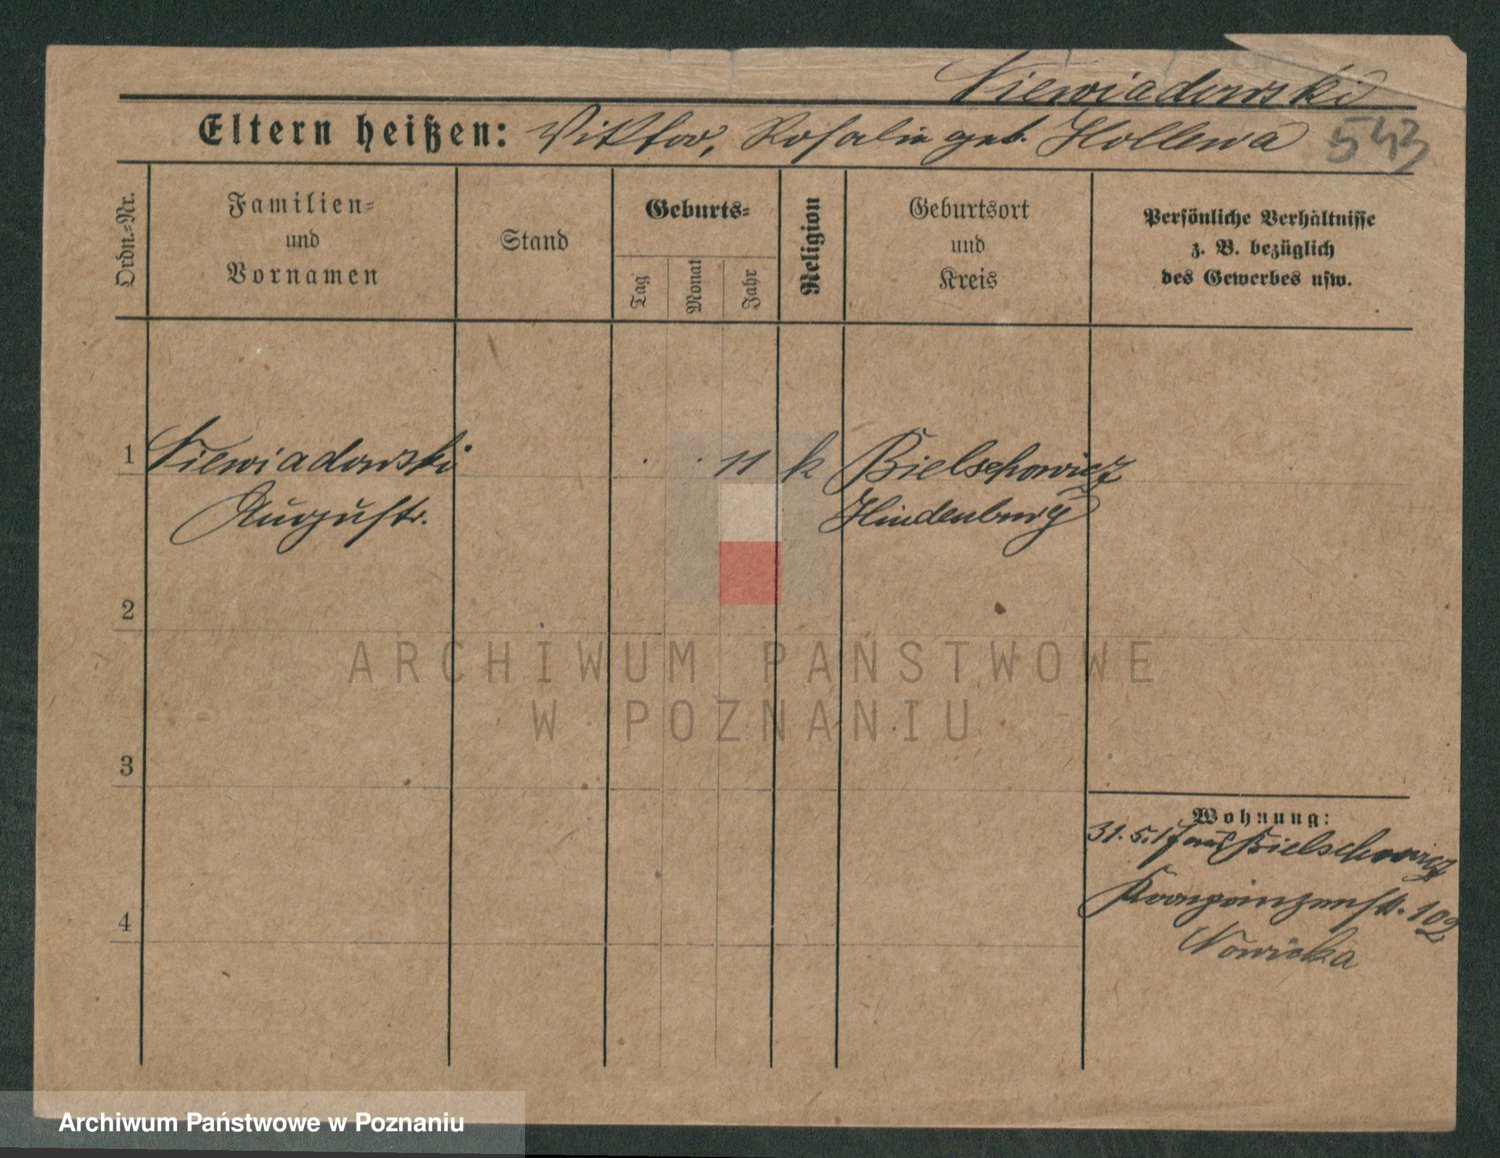 Niewiadowski
Eltern heißen: Viktor, Rosalie geb. Hollewa
543
Ordn.-Nr.
Familien-
und
Vornamen
Stand
Geburts-
Tag
Monat
Jahr
Religion
Geburtsort
und
Kreis
Persönliche Verhältnisse
z. B. bezüglich
des Gewerbes usw.
1 Niewiadowski . . 11 k Bielschowicz
August. Hindenburg
2
ARCHIWUM PAŃSTWOWE
W POZNANIU
3
Wohnung:
31.5.17 aus Bielschowicz
Kronprinzenstr. 102
Nowicka
4
Archiwum Państwowe w Poznaniu